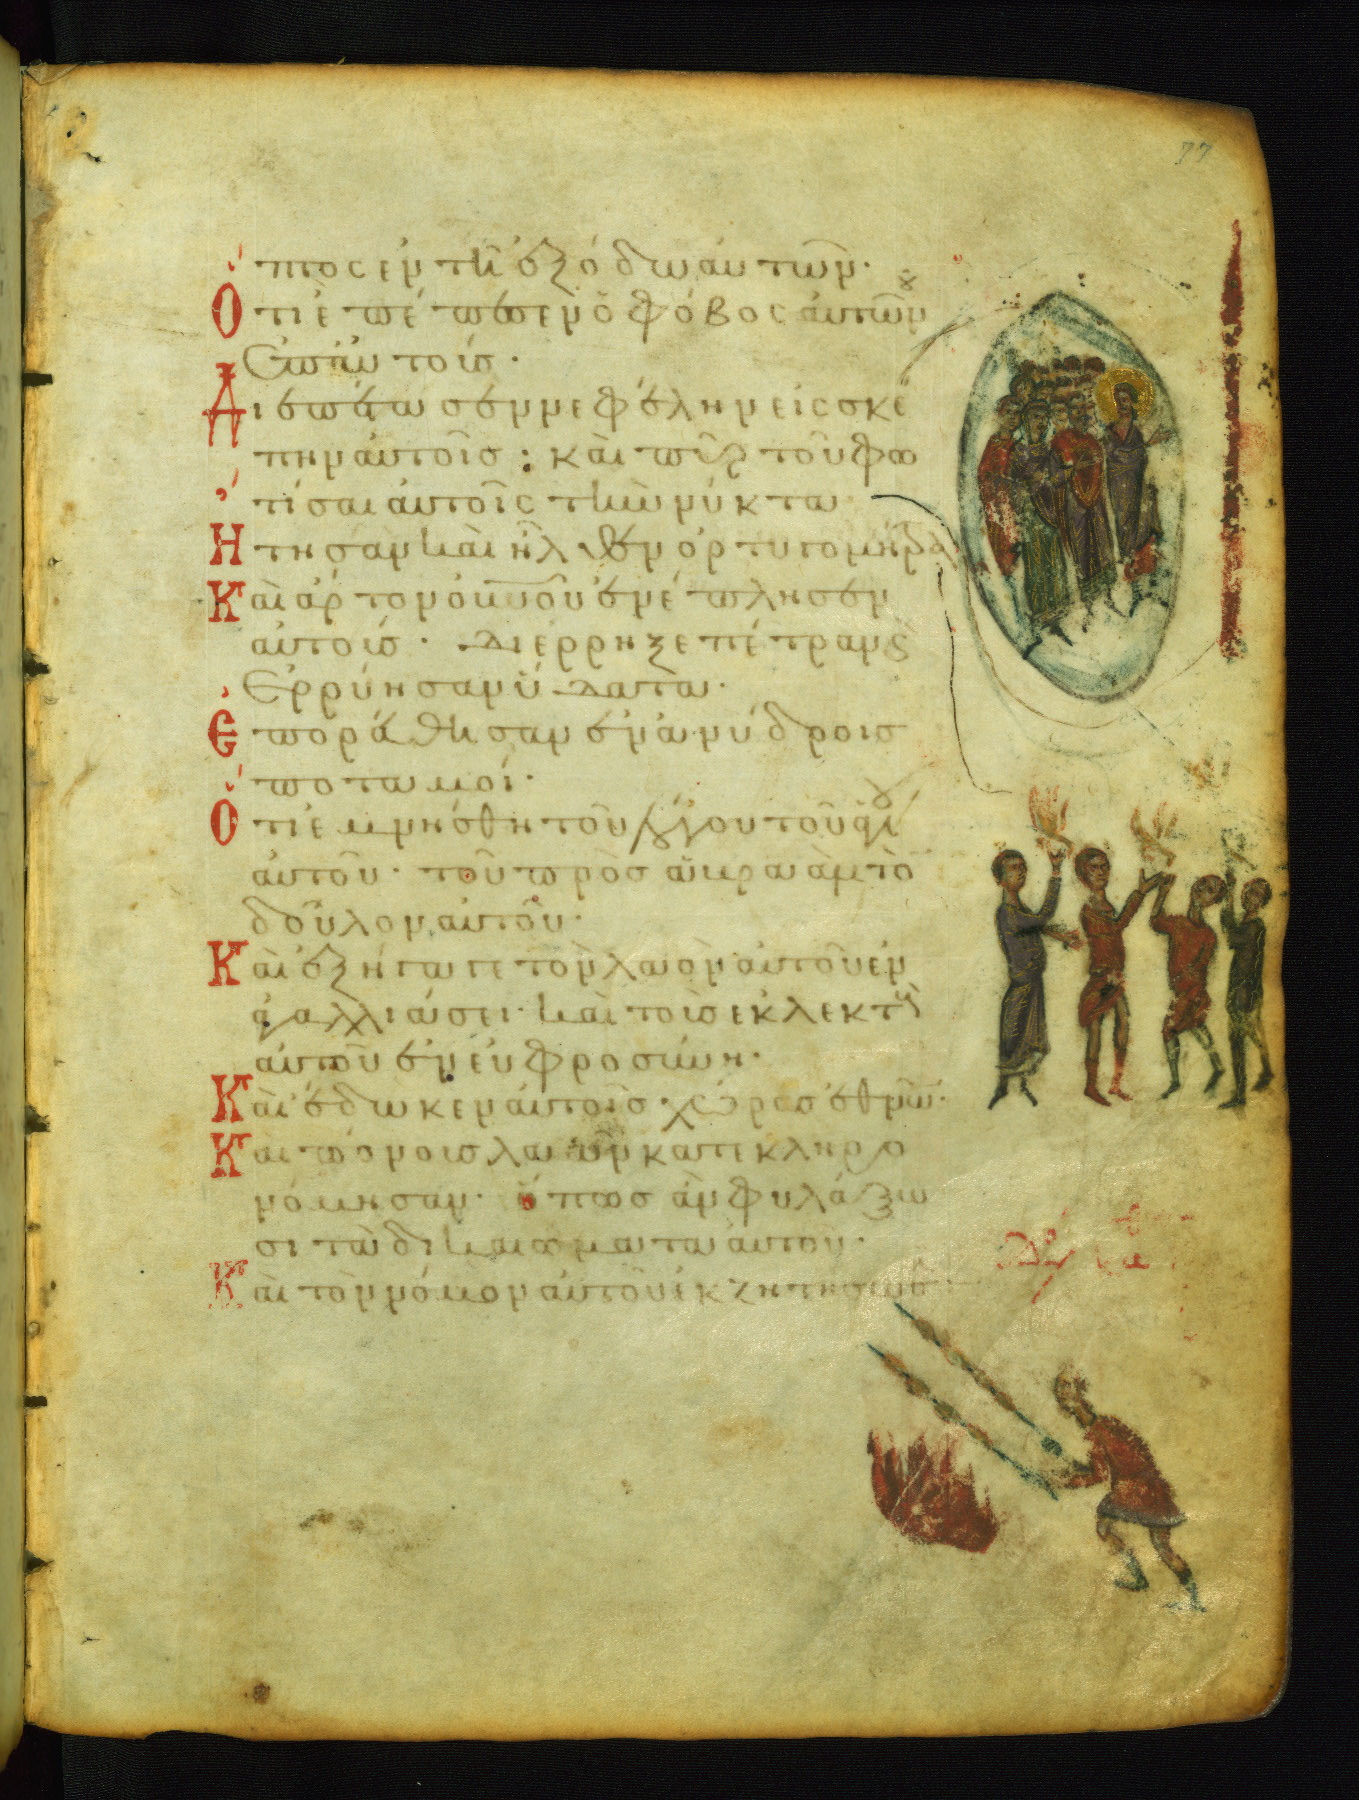 77
πτος εν τῆ ἐξόδω αὐτῶν·
Ὅτι ἐπέπεσεν ὁ φόβος αὐτῶν
ἐπ' αὐτοίς·
Διεπέτασεν νεφέλην εἰς σκέ
πην αὐτοῖς: καὶ πῦρ τοῦ φω
τίσαι αὐτοῖς τὴν νύκτα
Ἤτησαν καὶ ἦλθεν ὀρτυγομήτρα
Καὶ ἄρτον οὐνοῦ ἐνέπλησεν
αὐτοίς· διέρρηξε πέτραν ϗ
ἐρρύησαν ὕδατα·
Ἐπορεύθησαν ἐν ἀνύδροις
ποταμοί·
Ὅτι ἐμνήσθη τοῦ λόγου τοῦ ἁγί
αὐτοῦ· τοῦ πρὸς ἀβραὰμ τὸ
δοῦλον αὐτοῦ·
Καὶ ἐξήγαγε τὸν λαὸν αὐτοῦ ἐν
ἀγαλλιάσει· καὶ τοὺς ἐκλεκτοὺς
αὐτοῦ ἐν εὐφροσύνη·
Καὶ ἔδωκεν αὐτοῖς χώρας ἐθνῶν·
Καὶ πόνους λαῶν κατεκληρο
νόμησαν· ὅπως ἂν φυλάξω
σι τὰ δικαιώματα αὐτοῦ·
Καὶ τὸν νόμον αὐτοῦ ἐκζητήσωσι